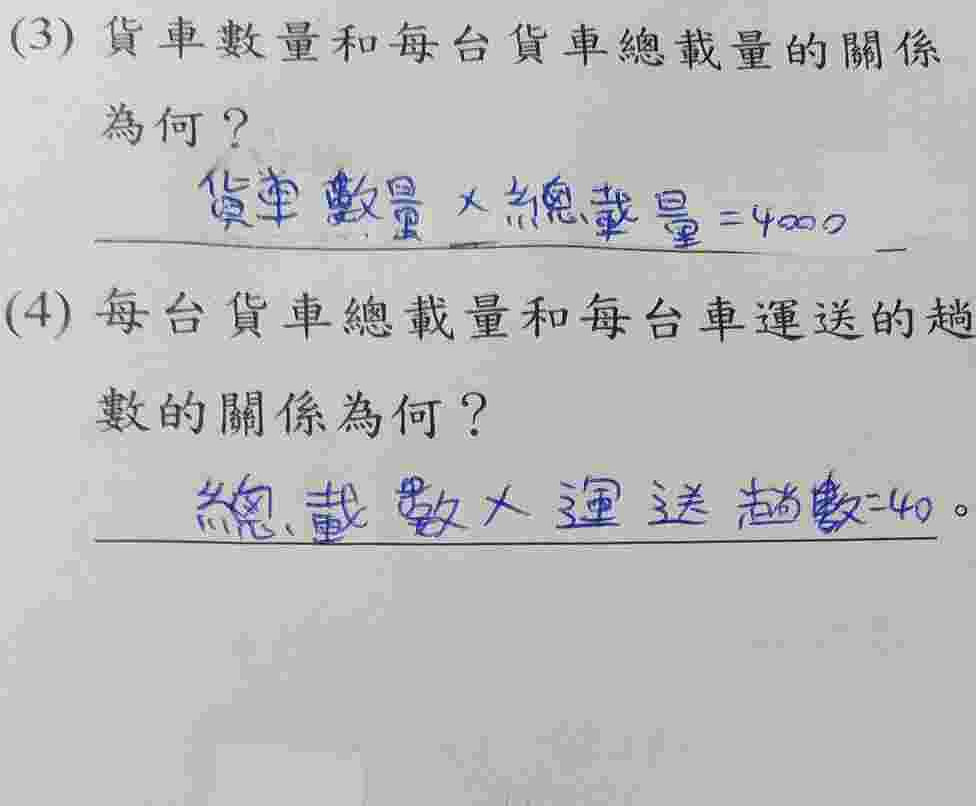 (3) 貨車數量和每台貨車總載量的關係
為何？
貨車數量×總載量=4000
(4) 每台貨車總載量和每台車運送的趟
數的關係為何？
總載數×運送趟數=40。